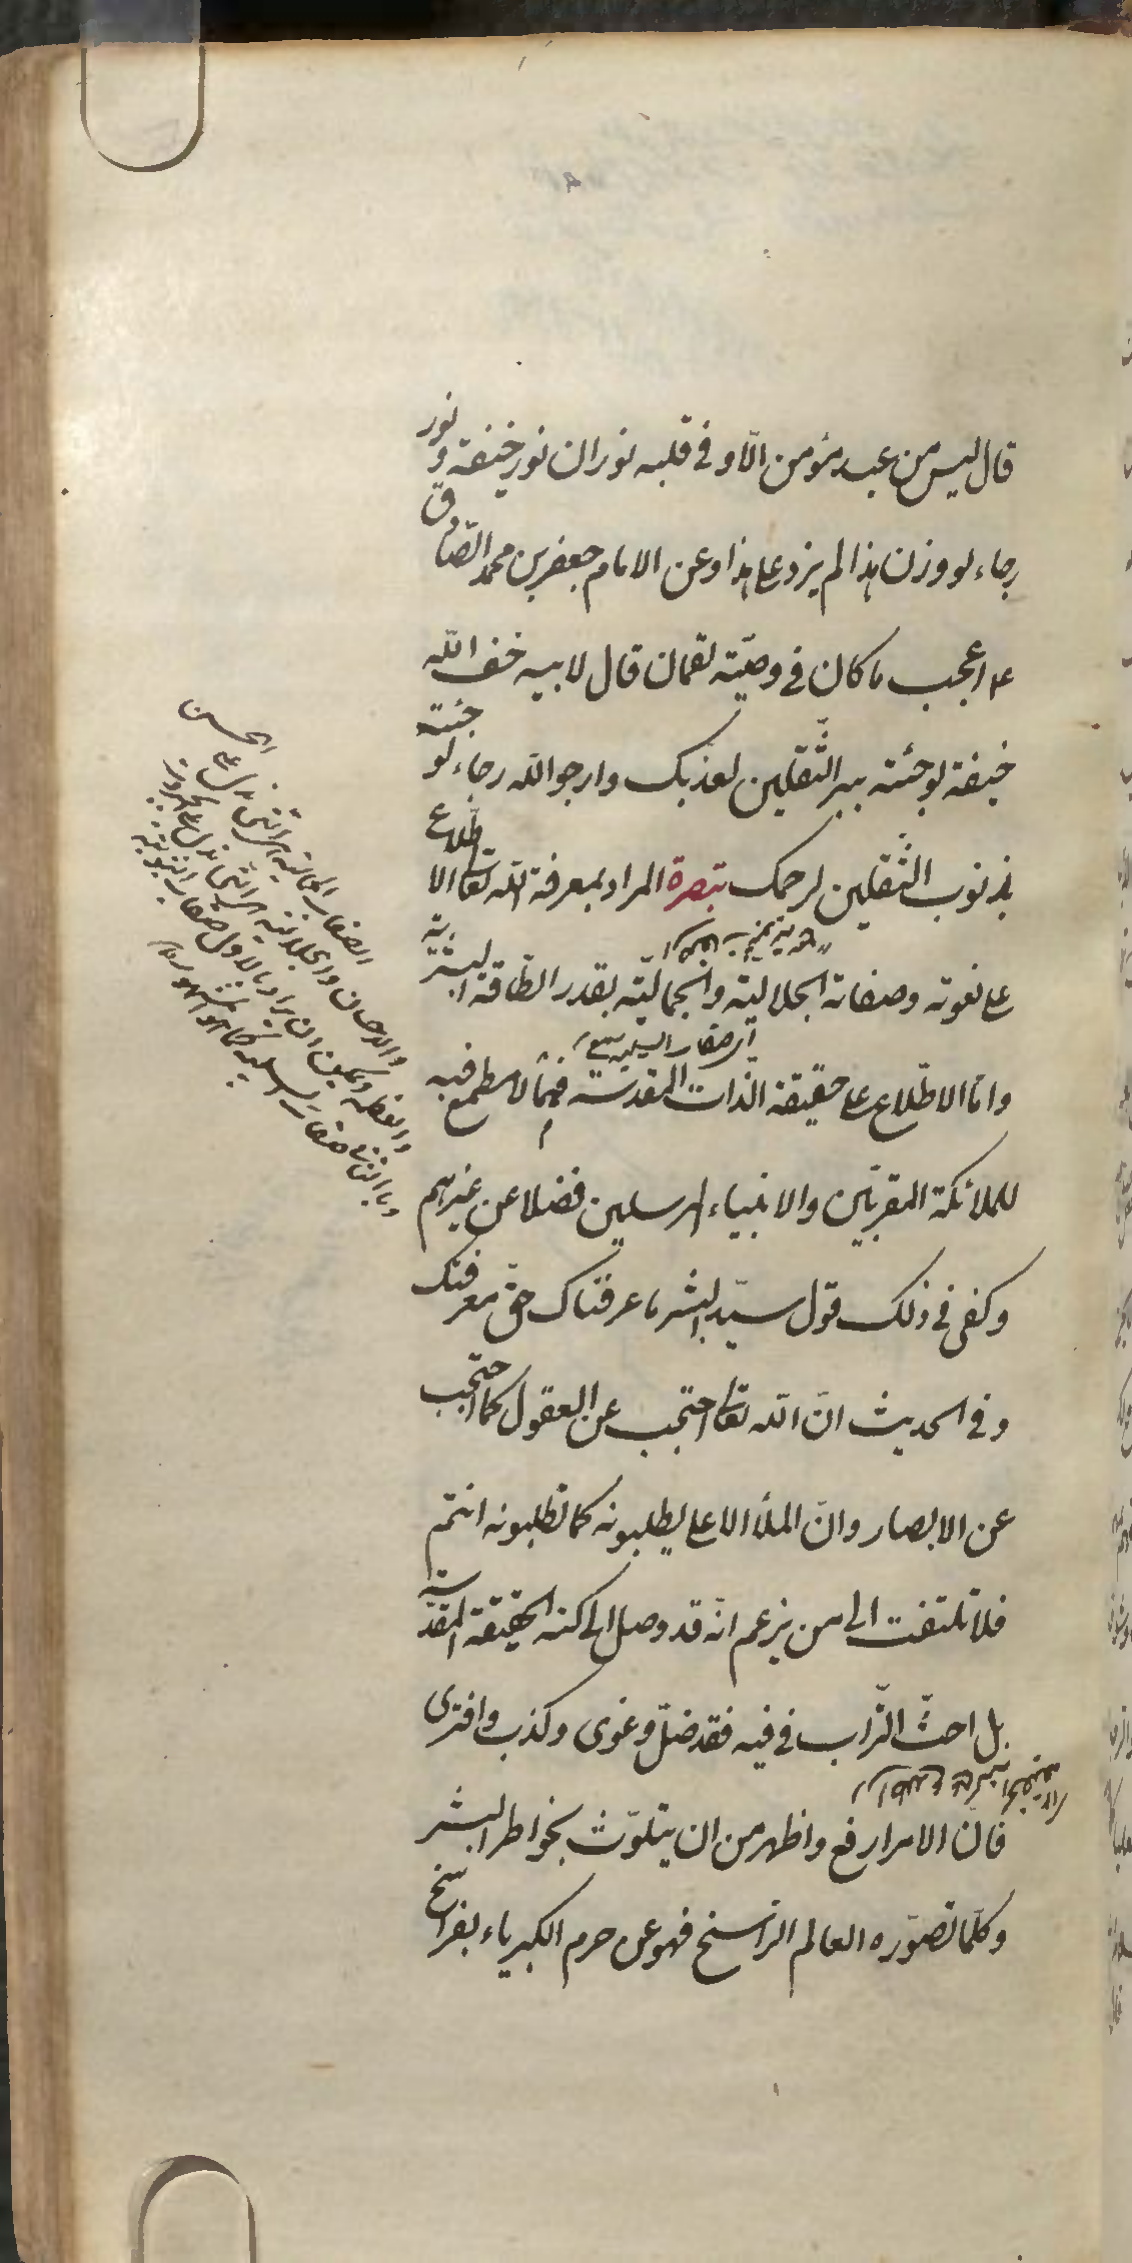 قال ليس من عبد مؤمن الّا و فى قلبه نوران نور خيفة و نور
رجاء لو وزن هذا لم يزد على هذا و عن الامام جعفر بن محمد الصّادق
ع اعجب ما كان فى وصيّة لقمان قال لابنه خف اللّه
خيفة لو جئته ببر الثّقلين لعذبك و ارجو اللّه رجاء لو جئته
بذنوب الثّقلين لرحمك تبصرة المراد بمعرفة اللّه تعالى الاطّلاع
على نعوته و صفاته الجلالية و الجماليّة بقدر الطّاقة البشريّة
و امّا الاطّلاع على حقيقة الذات المقدسة فممّا لا مطمع فيه
للملائكة المقربّين و الانبياء المرسلين فضلا عن غيرهم
و كفى فى ذلك قول سيّد البشر ما عرفناك حقّ معرفتك
و فى الحديث انّ اللّه تعالى احتجب عن العقول كما احتجب
عن الابصار و انّ الملأ الاعلى يطلبونه كما تطلبونه انتم
فلا تلتفت الى من يزعم انّه قد وصل الى كنه الحقيقة المقدّسة
بل احثّ التّراب فى فيه فقد ضلّ و غوى و كذب و افترى
فان الامر ارفع و اظهر من ان يتلوّث بخواطر البشر
و كلّما تصوّره العالم الرّاسخ فهو عن حرم الكبرياء بفراسخ
الصفات الجمالية هى التى تدل على الحسن
و الاحسان و الجلالية هى التى تدل على
و العظمة و يمكن ان يراد بالاول صفات الثبوتية
و بالثانى صفات السلبية كما هو المشهور
اى صفات السلبية